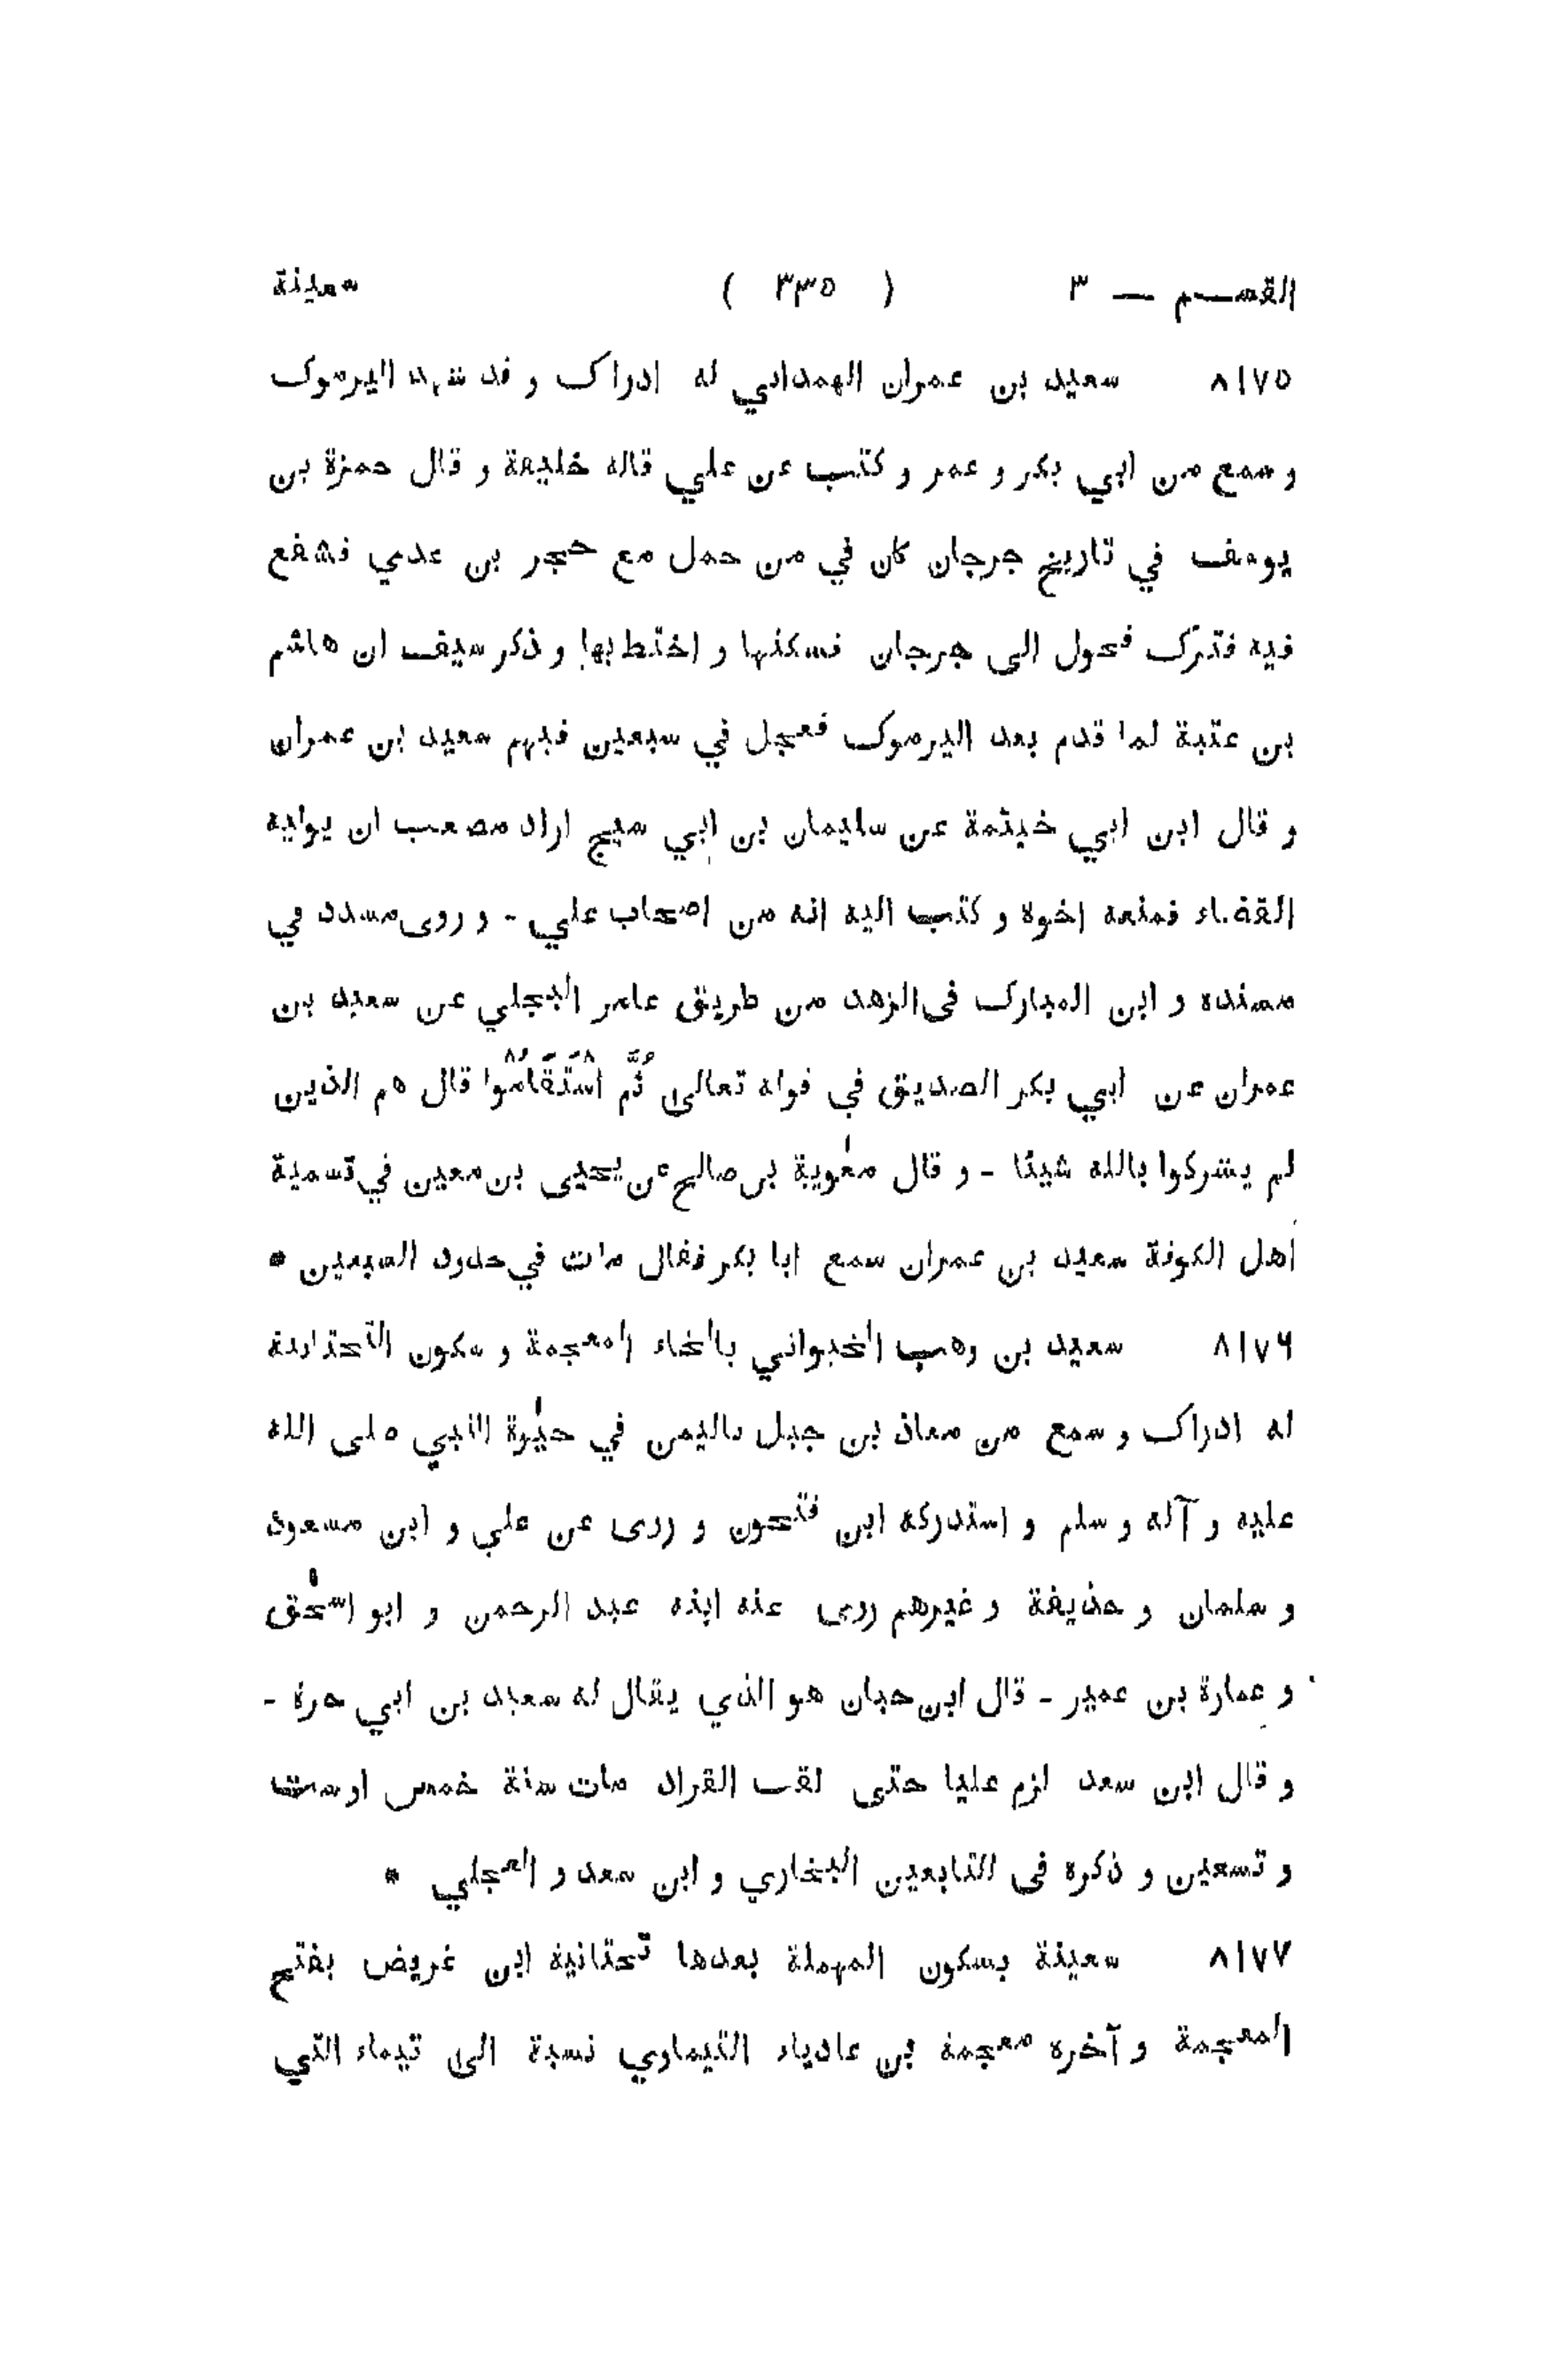 القسم — ٣ ( ٣٣٥ ) سعينة
٨١٧٥ سعيد بن عمران الهمداني له ادراك و قد شهد اليرموك
و سمع من ابي بكر و عمر و كتب عن علي قاله خليفة و قال حمزة بن
يوسف في تاريخ جرجان كان في من حمل مع حجر بن عدي فشفع
فيه فترك فحول الى جرجان فسكنها و اختط بها و ذكر سيف ان هاشم
بن عتبة لما قدم بعد اليرموك فعجل في سبعين فيهم سعيد بن عمران
و قال ابن ابي خيثمة عن سليمان بن ابي سيح اراد مصعب ان يوليه
القضاء فمنعه اخوه و كتب اليه انه من اصحاب علي - و روى مسدد في
مسنده و ابن المبارك فى الزهد من طريق عامر البجلي عن سعيد بن
عمران عن ابي بكر الصديق في قوله تعالى ثُمَّ اسْتَقَامُوْا قال هم الذين
لم يشركوا بالله شيئا - و قال معٰوية بن صالح عن يحيى بن معين في تسمية
اهل الكوفة سعيد بن عمران سمع ابا بكر فقال مات في حدود السبعين *
٨١٧٦ سعيد بن وهب الخيواني بالخاء المعجمة و سكون التحتانية
له ادراك و سمع من معاذ بن جبل باليمن في حيٰوة النبي صلى الله
عليه و آله و سلم و استدركه ابن فتحون و روى عن علي و ابن مسعود
و سلمان و حذيفة و غيرهم روى عنه ابنه عبد الرحمن و ابو اسحٰق
و عمارة بن عمير - قال ابن حبان هو الذي يقال له سعيد بن ابي حرة -
و قال ابن سعد لزم عليا حتى لقب القراد مات سنة خمس او ست
و تسعين و ذكره فى التابعين البخاري و ابن سعد و العجلي *
٨١٧٧ سعينة بسكون المهملة بعدها تحتانية ابن غريض بفتح
المعجمة و آخره معجمة بن عادياء التيماوي نسبة الى تيماء التي